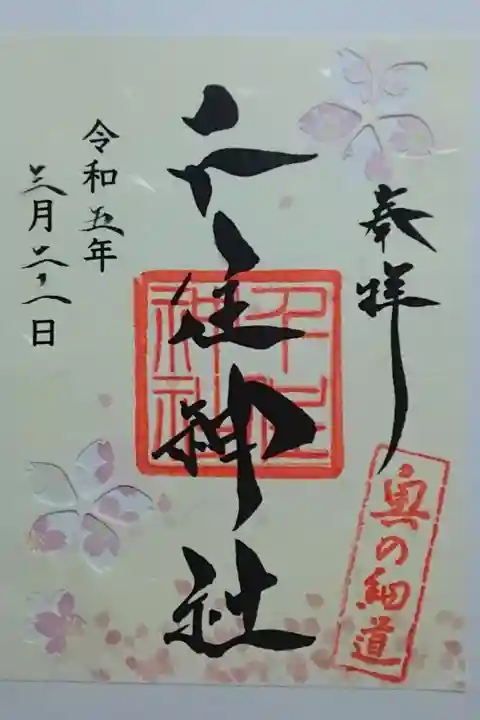 奉拝
奥の細道
千住神社
千住
神社
令和五年
三月二十八日